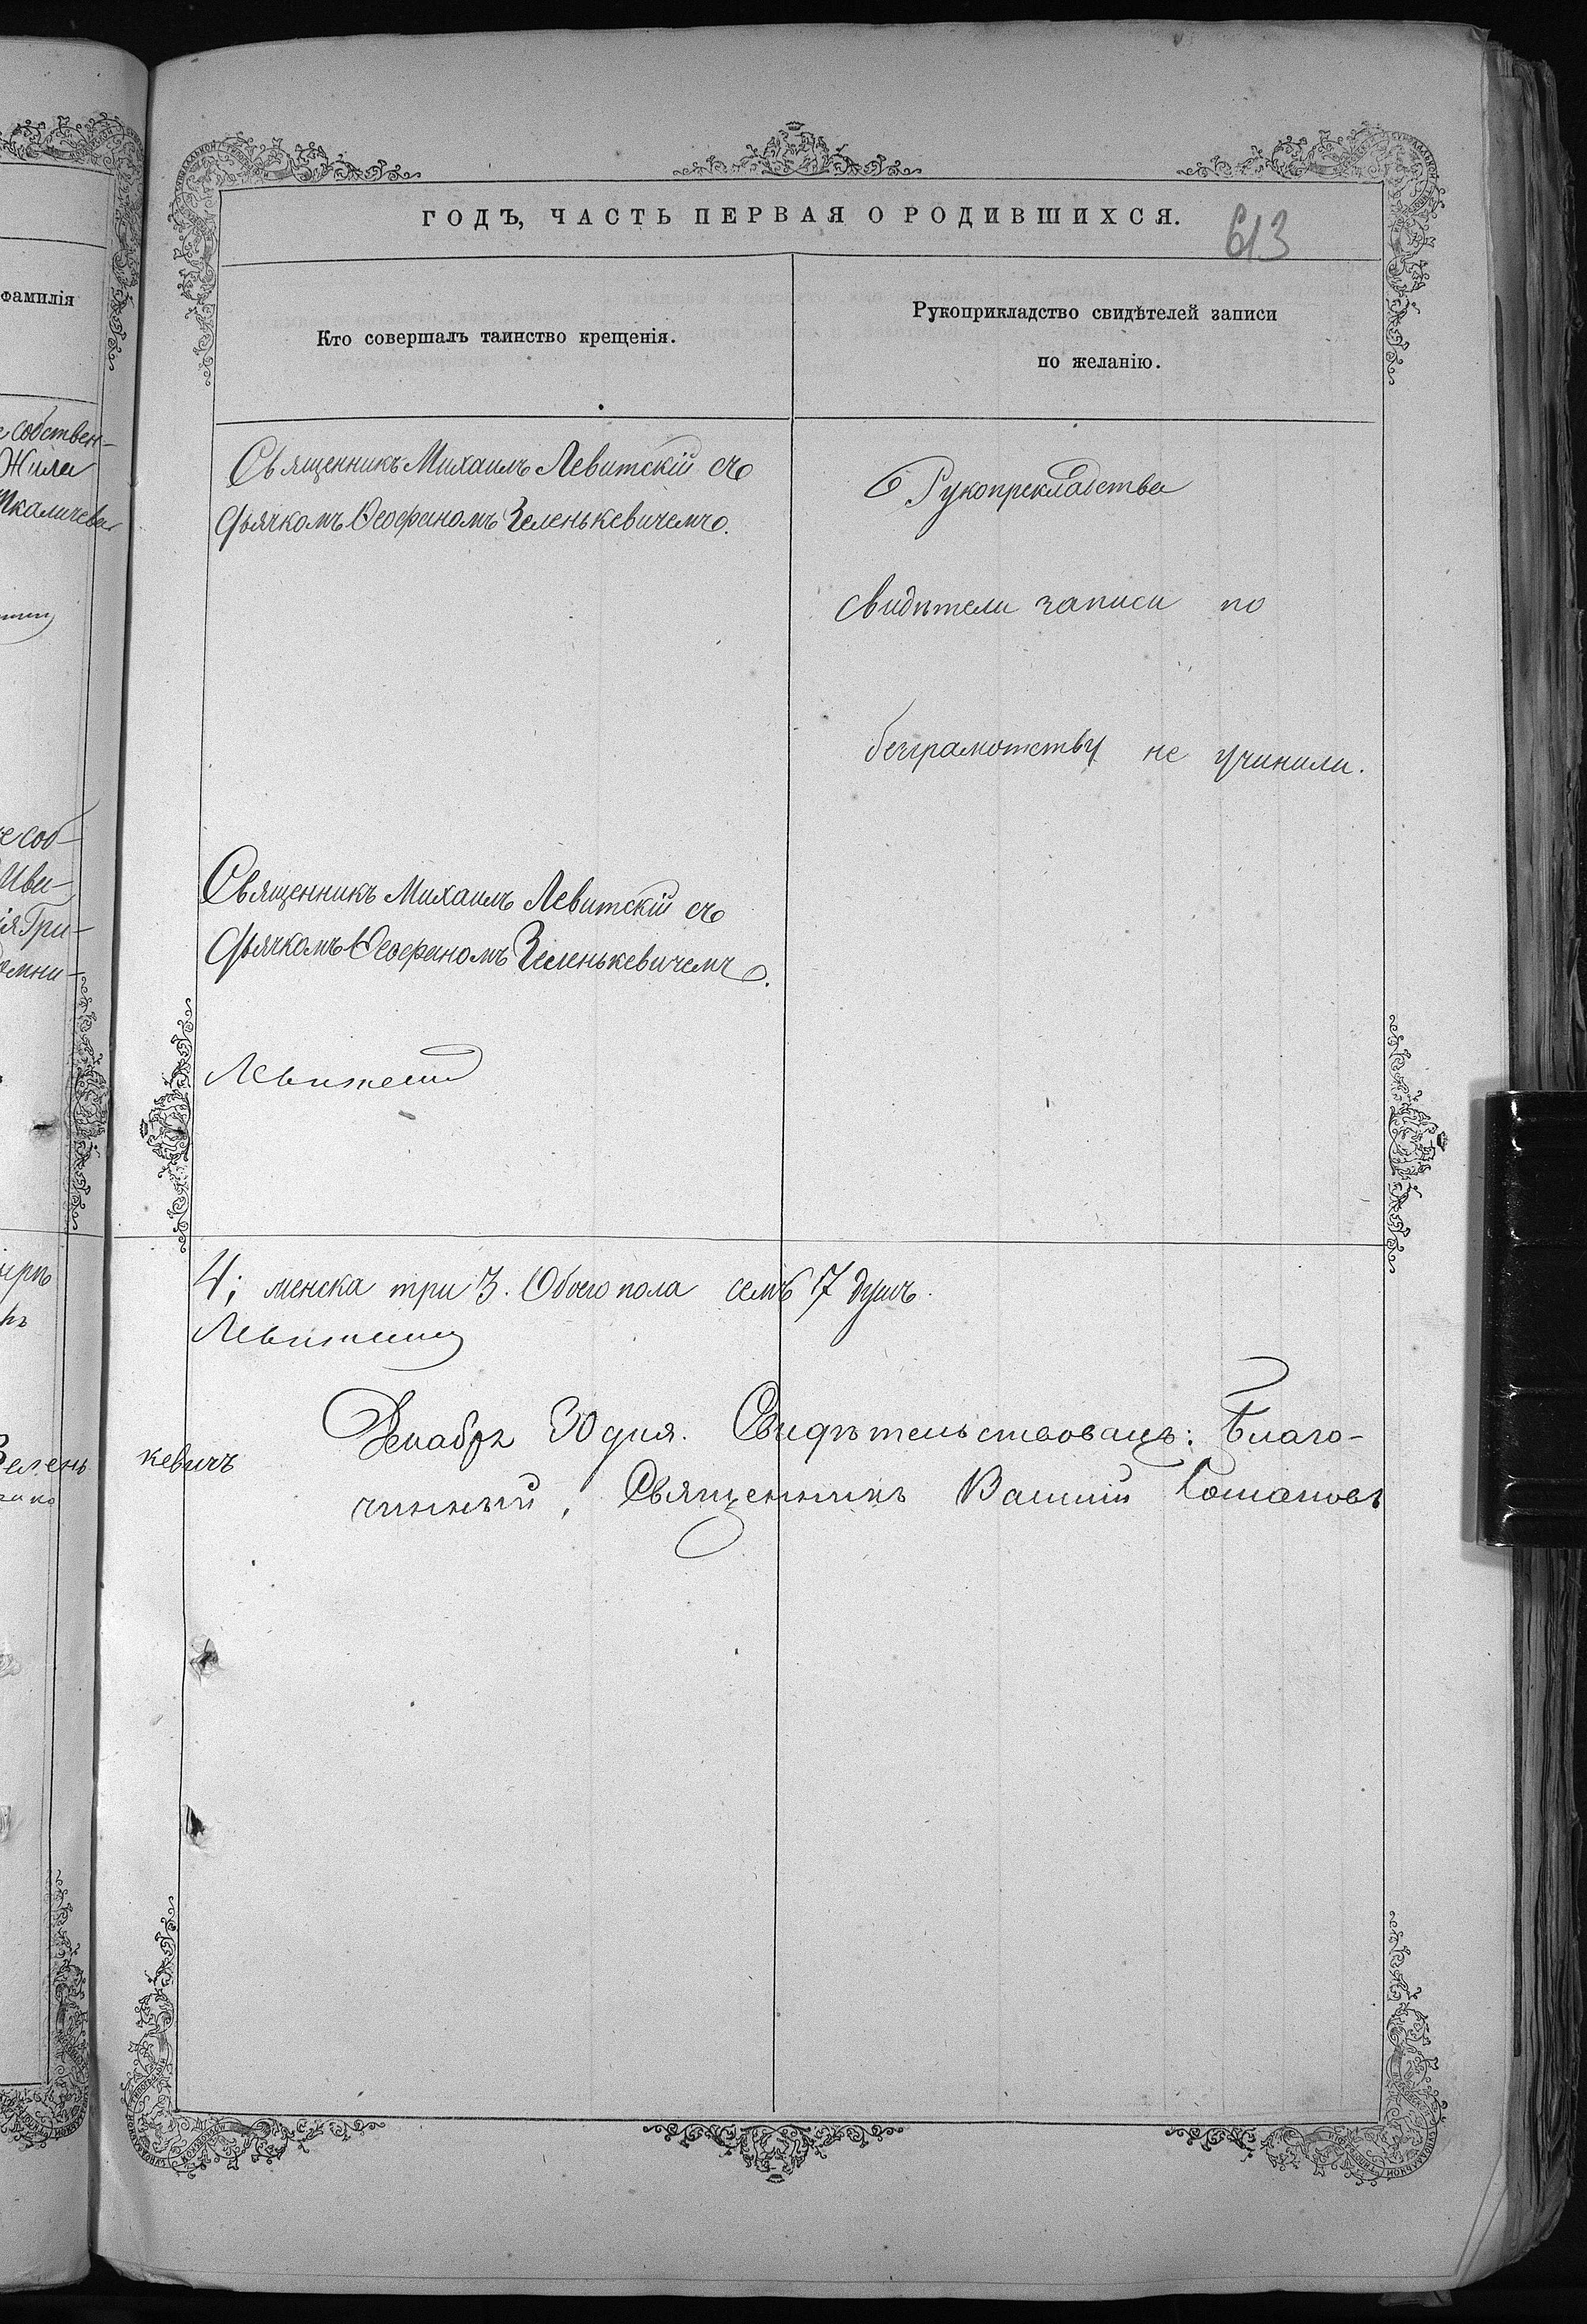 ГОДЪ, ЧАСТЬ ПЕРВАЯ О РОДИВШИХСЯ.
613
фамилія
Кто совершалъ таинство крещенія.
Рукоприкладство свидѣтелей записи
по желанію.
собствен-
Жила
Ткаличева
Священникъ Михаилъ Левитскій съ
Дьячкомъ Ѳеофаномъ Зеленькевичемъ.
Рукопрекладства
свидѣтели записи по
безграмотству не учинили.
е соб-
Ива-
ія Гри-
омни-
Священникъ Михаилъ Левитскій съ
Дьячкомъ Ѳеофаномъ Зеленькевичемъ.
Левитскій
4; менска три 3. Обоего пола семь 7 душъ.
Левитскій
Зелень
кевичъ
Декабря 30 дня. Свидѣтельствовалъ: Благо-
чинный, Священникъ